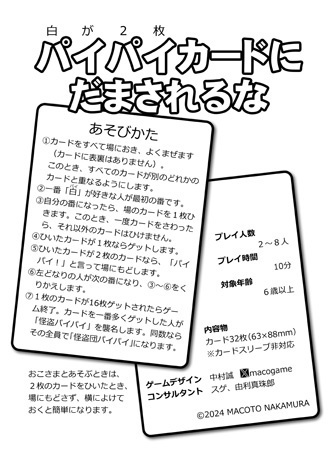 白が2枚
パイパイカードに
だまされるな
あそびかた
①カードをすべて場におき、よくまぜます
（カードに表裏はありません）。
このとき、すべてのカードが別のどれかの
カードと重なるようにします。
②一番「白」が好きな人が最初の番です。
③自分の番になったら、場のカードを１枚ひ
きます。このとき、一度カードをさわった
ら、それ以外のカードはひけません。
④ひいたカードが１枚ならゲットします。
⑤ひいたカードが２枚のカードなら、「パイ
パイ！」と言って場にもどします。
⑥左どなりの人が次の番になり、③～⑥をく
りかえします。
⑦１枚のカードが16枚ゲットされたらゲー
ム終了。カードを一番多くゲットした人が
「怪盗パイパイ」を襲名します。同数なら
その全員で「怪盗団パイパイ」になります。
おこさまとあそぶときは、
２枚のカードをひいたとき、
場にもどさず、横によけて
おくと簡単になります。
プレイ人数
２～８人
プレイ時間
10分
対象年齢
６歳以上
内容物
カード32枚(63×88mm)
※カードスリーブ非対応
ゲームデザイン 中村誠 X macogame
コンサルタント スゲ、由利真珠郎
©2024 MACOTO NAKAMURA